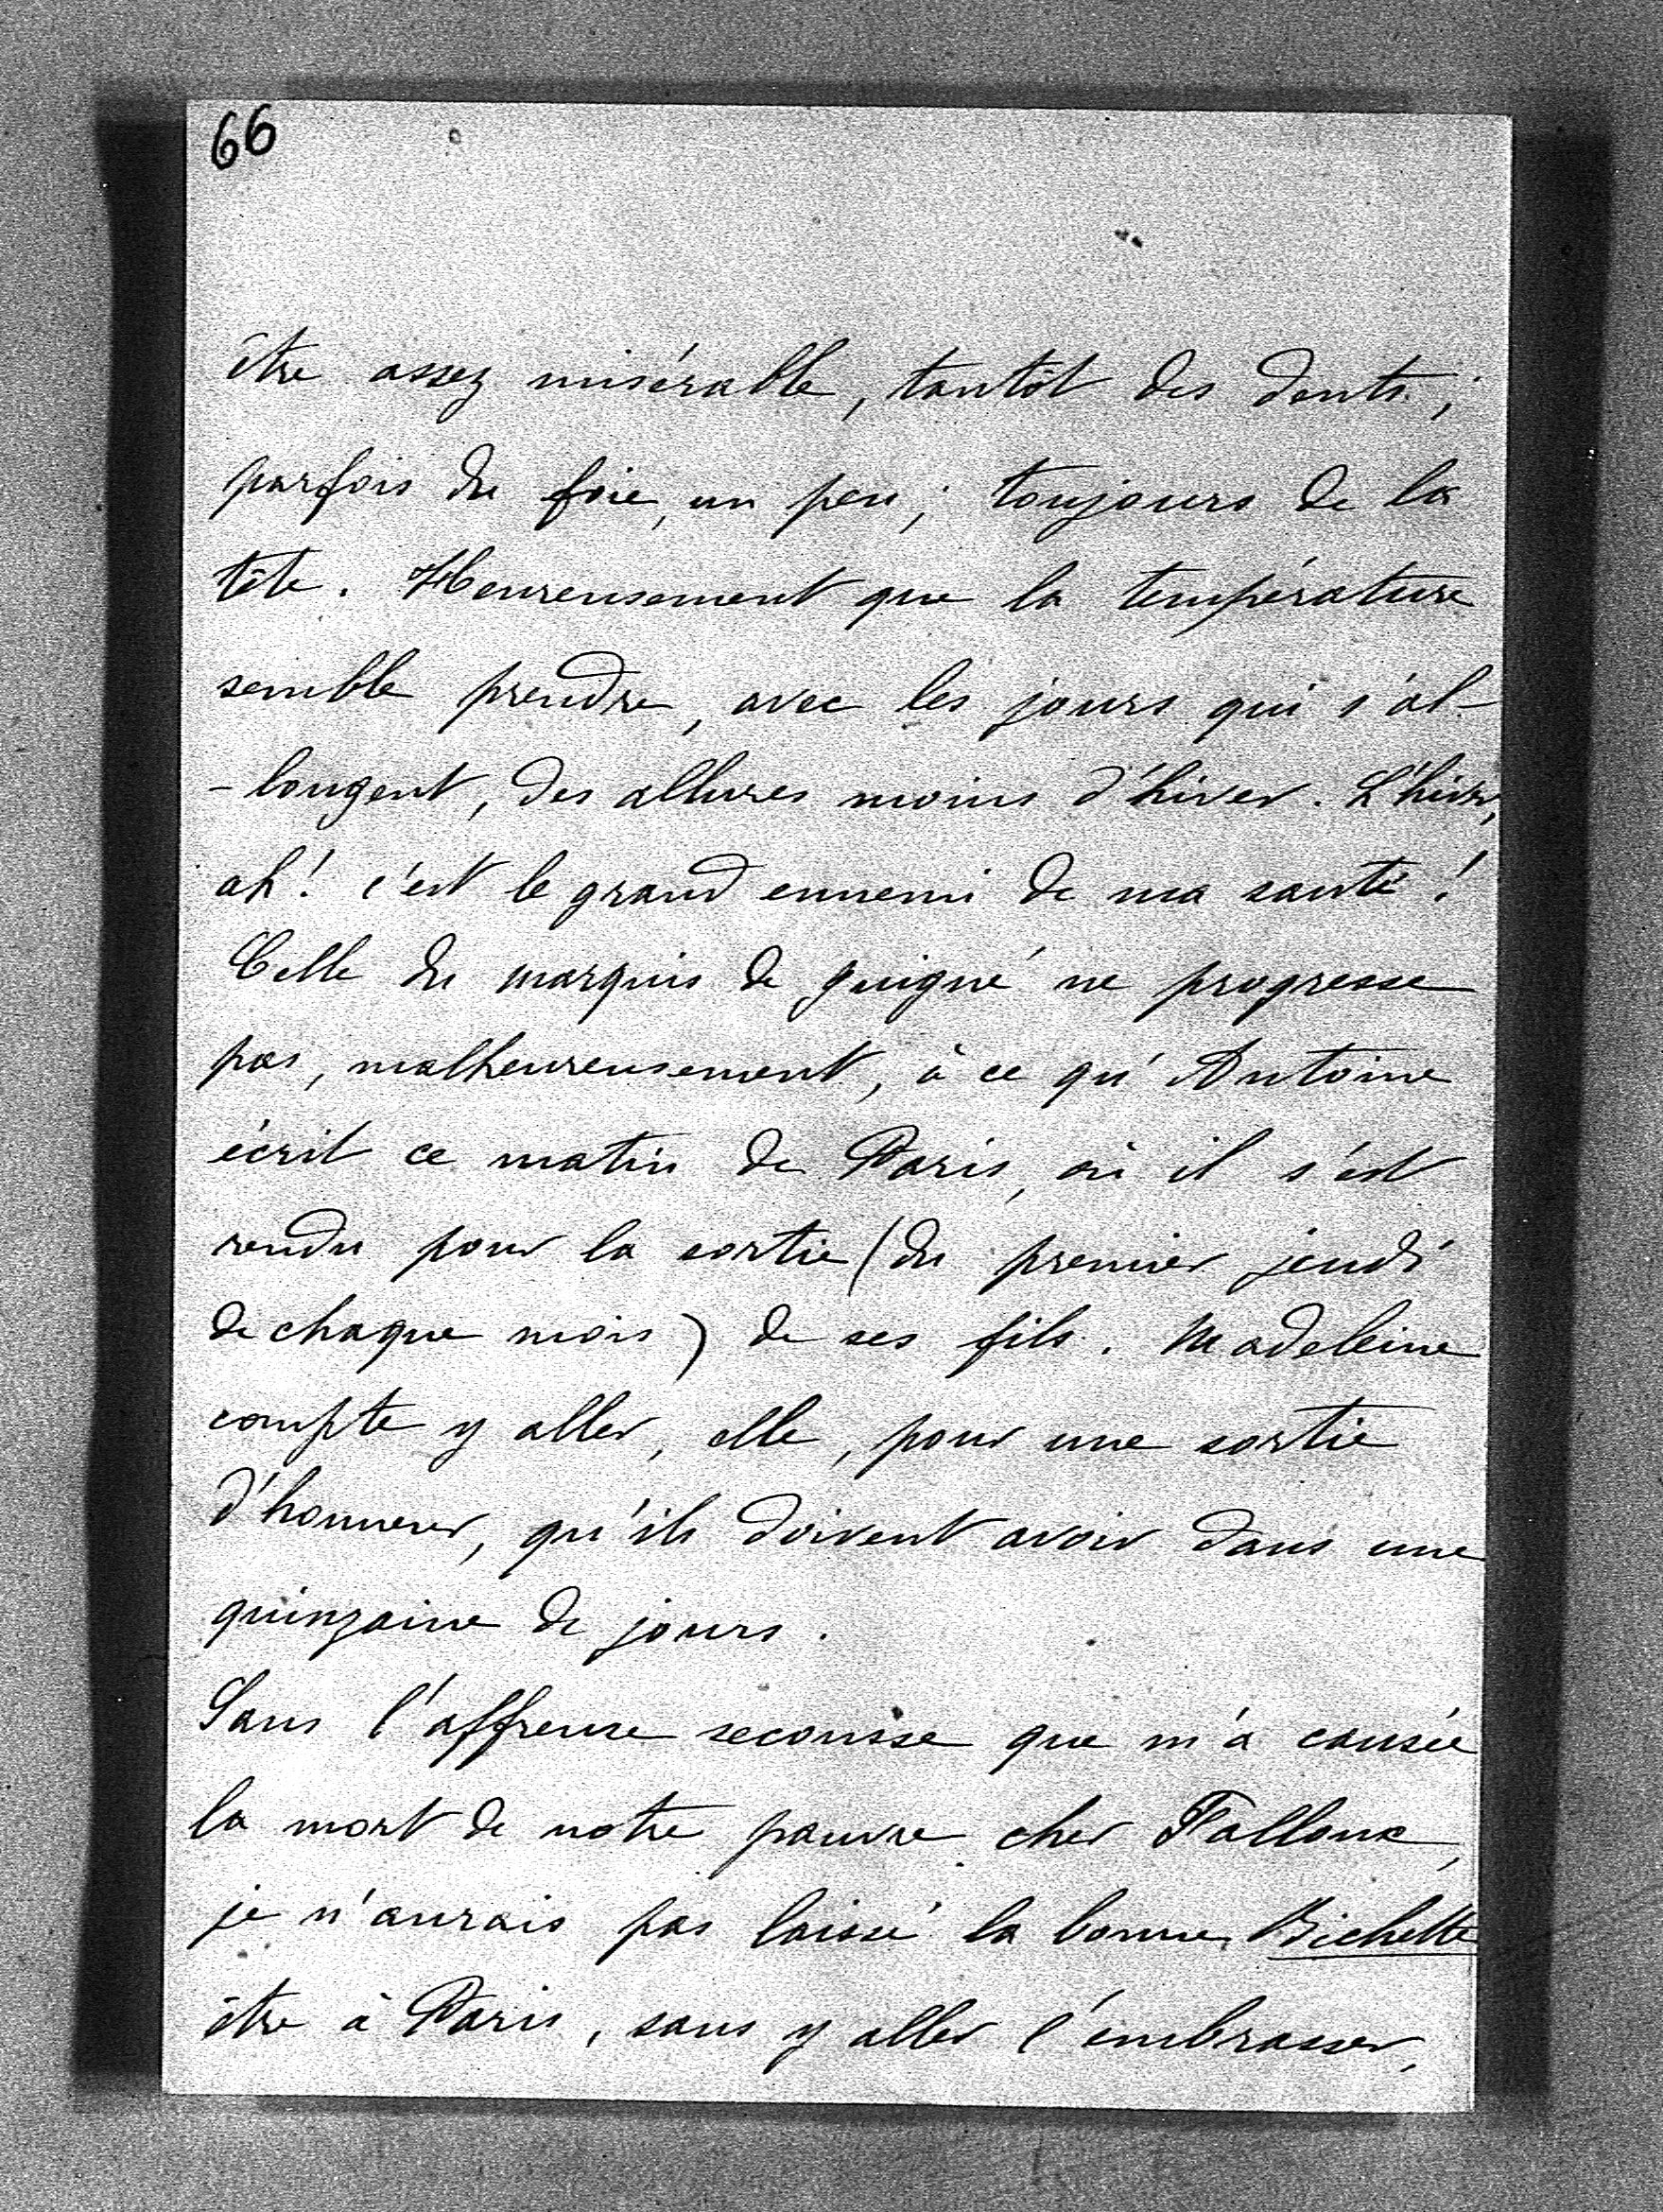 66
être assez misérable, tantôt des dents ;
parfois du foie, un peu ; toujours de la
tête. Heureusement que la température
semble prendre, avec les jours qui s'al-
-longent, des allures moins d'hiver. L'hiver,
ah ! c'est le grand ennemi de ma santé !
Celle du marquis de guigné ne progresse
pas, malheureusement, à ce qu'Antoine
écrit ce matin de Paris, où il s'est
rendu pour la sortie (du premier jeudi
de chaque mois) de ses fils. Madeleine
compte y aller, elle, pour une sortie
d'honneur, qu'ils doivent avoir dans une
quinzaine de jours.
Sans l'affreuse secousse que m'a causée
la mort de notre pauvre cher Falloux,
je n'aurais pas laissé la bonne Bichette
être à Paris, sans y aller l'embrasser.